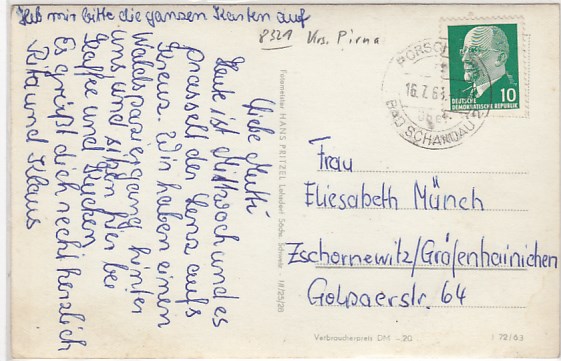 Heb mir bitte die ganzen Karten auf
8321 Krs. Pirna
Liebe Mutti
Heute ist Mittwoch und es
prasselt der Lenz aufs
Neue. Wir haben einen
Waldspaziergang hinter
uns und sitzen hier bei
Kaffee und Kuchen
Es grüßt dich recht herzlich
Rita und Klaus
Fotomeister HANS PRITZEL Lohsdorf Sächs. Schweiz - 18/25/28
16.7.64
BAD SCHANDAU
DEUTSCHE
DEMOKRATISCHE REPUBLIK
10
Frau
Eliesabeth Münch
Zschornewitz/Gräfenhainichen
Golpaerstr. 64
Verbraucherpreis DM -.20
I 72/63